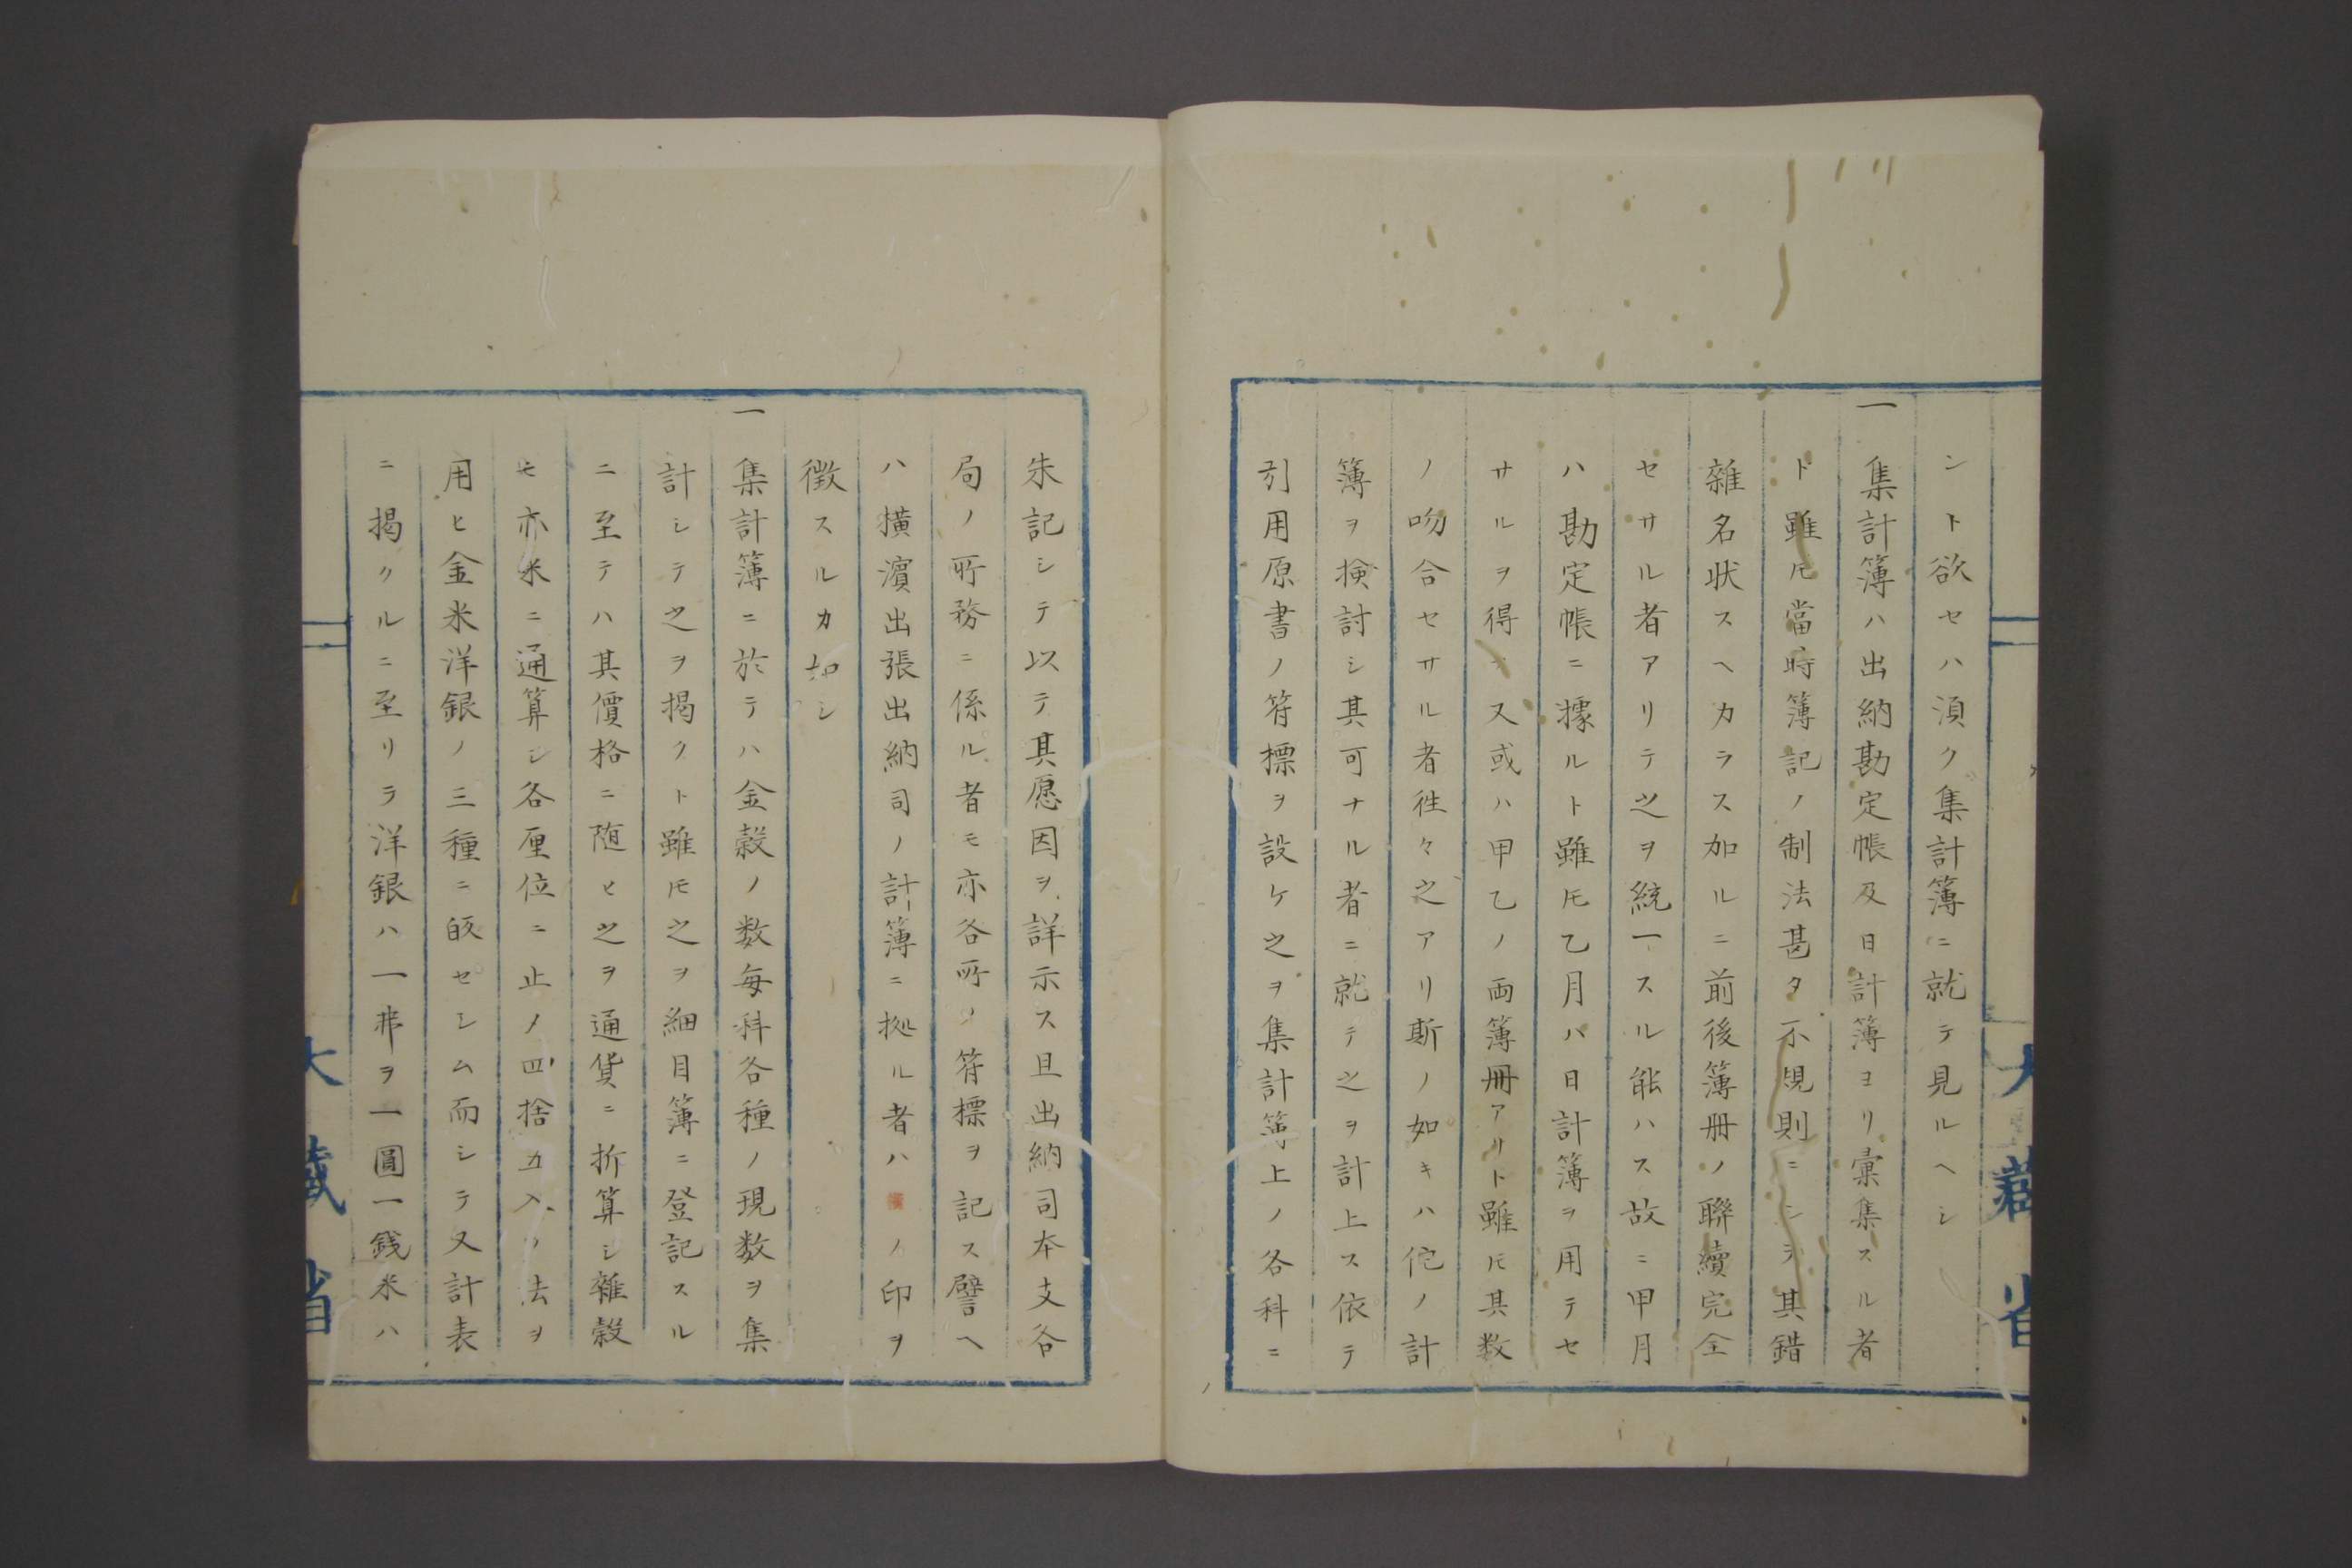 ント欲セハ湏ク集計簿ニ就テ見ルヘシ
一集計簿ハ出納勘定帳及日計簿ヨリ彙集スル者
ト雖𪜈當時簿記ノ制法甚タ不規則ニシテ其錯
雜名状スヘカラス加ルニ前後簿冊ノ聯續完全
セサル者アリテ之ヲ統一スル能ハス故ニ甲月
ハ勘定帳ニ據ルト雖𪜈乙月ハ日計簿ヲ用テセ
サルヲ得ス又或ハ甲乙ノ両簿冊アリト雖𪜈其数
ノ吻合セサル者徃々之アリ斯ノ如キハ佗ノ計
簿ヲ検討シ其可ナル者ニ就テ之ヲ計上ス依テ
引用原書ノ符標ヲ設ケ之ヲ集計簿上ノ各科ニ
大藏省
朱記シテ以テ其愿因ヲ詳示ス且出納司本支各
局ノ所務ニ係ル者モ亦各所ノ符標ヲ記ス譬ヘ
ハ横濵出張出納司ノ計簿ニ拠ル者ハノ印ヲ
徴スルカ如シ
一集計簿ニ於テハ金穀ノ数毎科各種ノ現数ヲ集
計シテ之ヲ掲クト雖𪜈之ヲ細目簿ニ登記スル
ニ至テハ其價格ニ随ヒ之ヲ通貨ニ折算シ雜穀
モ亦米ニ通算シ各厘位ニ止ノ四捨五入ノ法ヲ
用ヒ金米洋銀ノ三種ニ皈セシム而シテ又計表
ニ掲クルニ至リテ洋銀ハ一弗ヲ一圓一銭米ハ
大藏省